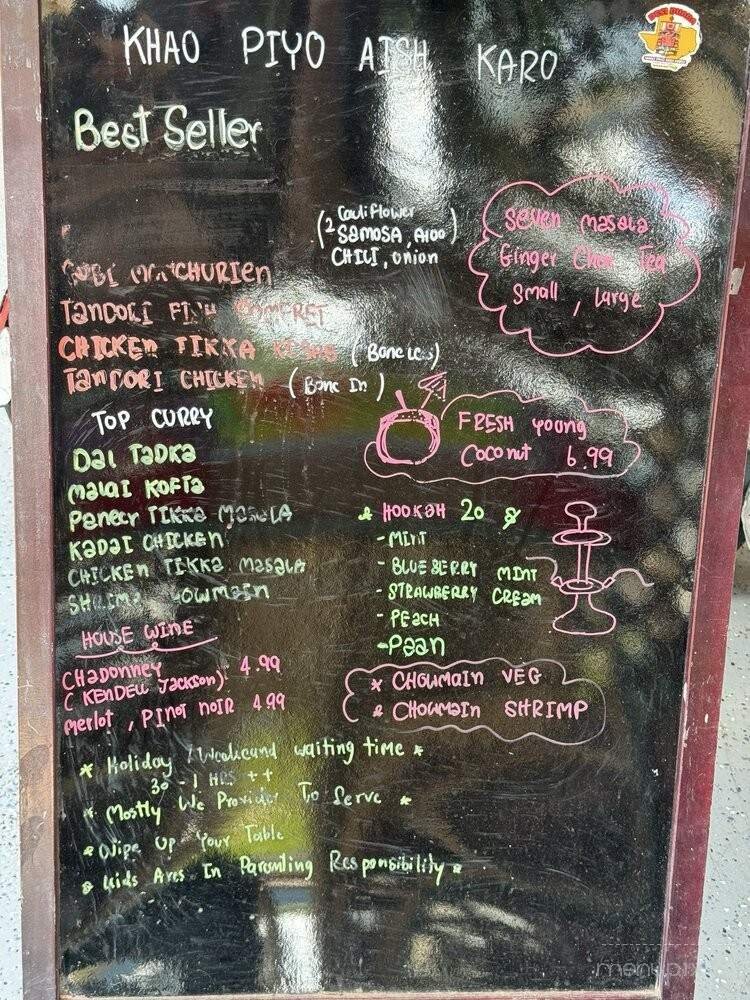 KHAO PIYO AISH KARO
Best Seller
(2 Cauliflower
SAMOSA, Aloo)
CHILI, onion
Seven masala
Ginger Tea
Small, large
GOBI MANCHURIEN
TANDORI FISH POMFRET
CHICKEN TIKKA (Bone Less)
TANDORI CHICKEN (Bone In)
TOP CURRY
Dal Tadka
malai Kofta
Paneer TIKKA MASALA
KADAI CHICKEN
CHICKEN TIKKA MASALA
SHRIMP
FRESH young
Coconut 6.99
HOOKAH 20 $
- MINT
- BLUEBERRY MINT
- STRAWBERRY CREAM
- PEACH
- Paan
HOUSE WINE
CHADONNEY 4.99
( KENDELL JACKSON)
merlot, PINOT NOIR 4.99
* CHOWMAIN VEG
* CHOWMAIN SHRIMP
* Holiday / waiting time *
30 - 1 HRS ++
* Mostly We Provider To Serve *
* Wipe Up Your Table
* kids Ares In Parenting Responsibility *
menupix